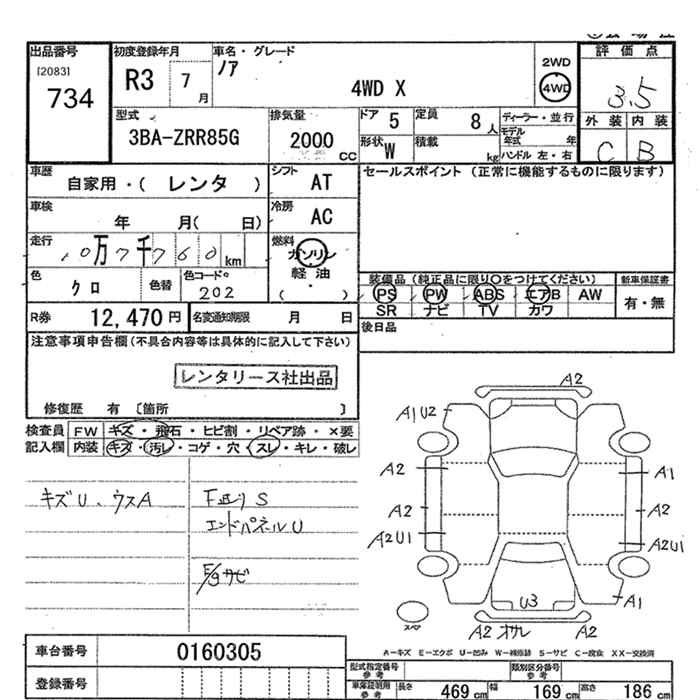 出品番号 初度登録年月 車名・グレード 評価点
[2083] ノア 2WD
734 R3 7月 4WD X 4WD 3.5
型式 排気量 ドア 5 定員 8人 ディーラー・並行 外装 内装
3BA-ZRR85G 2000CC 形状 W 積載 kg モデル年式 年 ハンドル 左・右 C B
車歴 自家用・( レンタ ) シフト AT セールスポイント (正常に機能するものに限ります)
車検 年 月( 日) 冷房 AC
走行 10万7千760km 燃料 ガソリン
軽・油
( )
色 クロ 色替 色コードNo 202
装備品 (純正品に限り○をつけてください) 新車保証書
PS PW ABS エアB AW 有・無
SR ナビ TV カワ
R券 12,470円 名変通知期限 月 日 後日品
注意事項申告欄(不具合内容等は具体的に記入して下さい)
レンタリース社出品
修復歴 有 〔箇所 〕
検査員 FW キズ・飛石・ヒビ割・リペア跡・×要
記入欄 内装 キズ・汚レ・コゲ・穴・スレ・キレ・破レ
キズU、ウスA
S
エンドパネルU
サビ
A2
A1U2
A2 A1
A2 A2
A2U1 A2U1
U3 A1
スペア A2 A2
A-キズ E-エクボ U-凹み W-補修跡 S-サビ C-腐食 XX-交換済
車台番号 0160305
登録番号
型式指定番号参考 類別区分番号参考
車庫証明用参考 長さ 469cm 幅 169cm 高さ 186cm